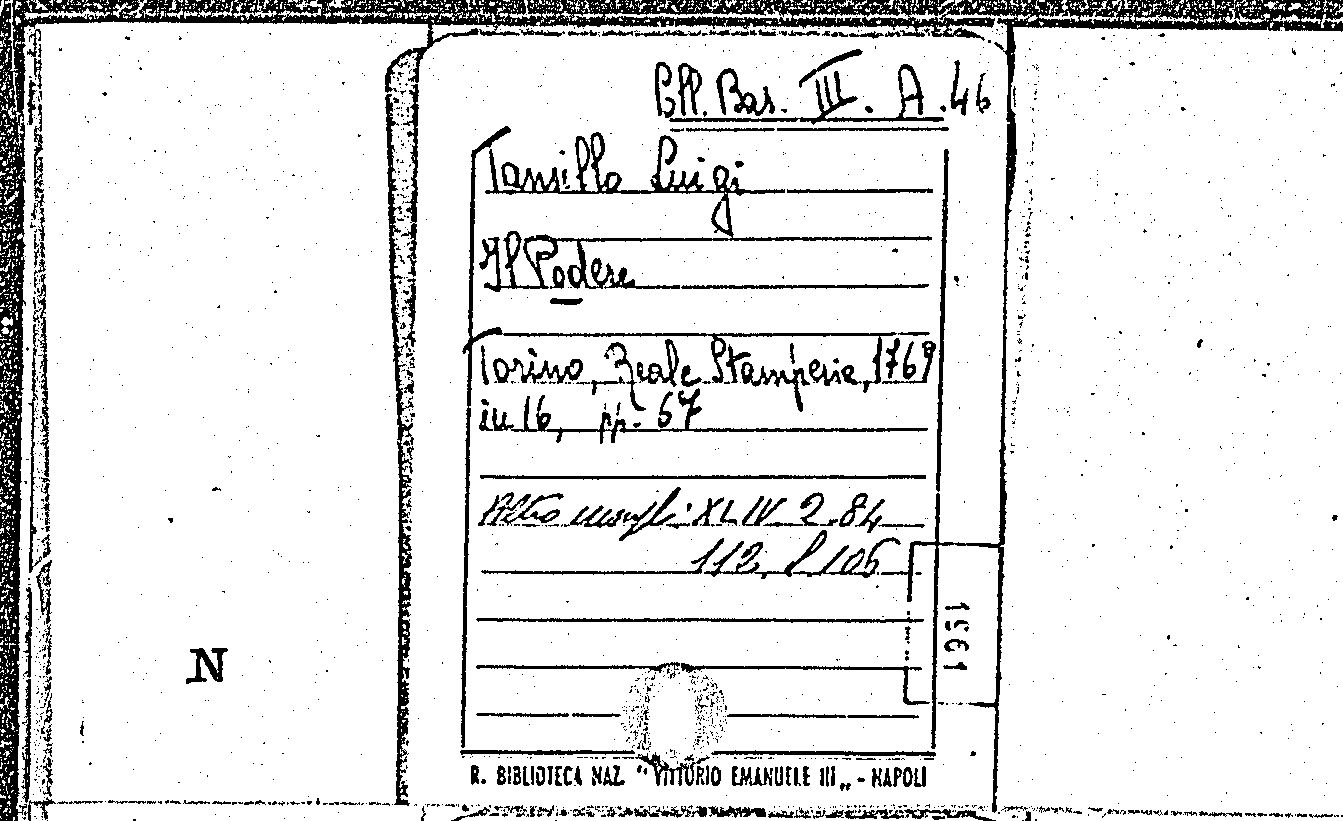 Bll. Bas. III. A. 46
Tansillo Luigi
Il Podere
Torino, Reale Stamperia, 1769
in 16, pp. 67
Altro XLIV. 2. 84
112. 106
1961
N
R. BIBLIOTECA NAZ. "VITTORIO EMANUELE III„ - NAPOLI